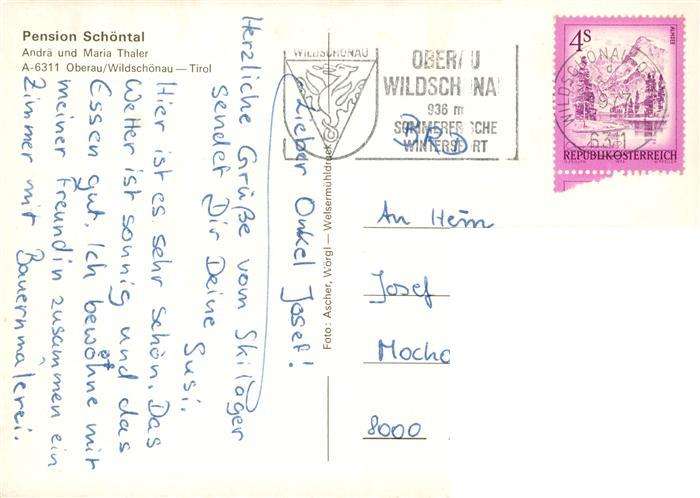 Pension Schöntal
Andrä und Maria Thaler
A-6311 Oberau/Wildschönau — Tirol
Lieber Onkel Josef!
Herzliche Grüße vom Skilager
sendet Dir Deine Susi.
Hier ist es sehr schön. Das
Wetter ist sonnig und das
Essen gut. Ich bewohne mit
meiner Freundin zusammen ein
Zimmer mit Bauernmalerei.
Foto: Ascher, Wörgl — Welsermühldruck
WILDSCHÖNAU
OBERAU
WILDSCHÖNAU
936 m
SOMMERFRISCHE
WINTERSPORT
WILDSCHÖNAU
6311
4S
ALMSEE
REPUBLIK ÖSTERREICH
BRD
An Herrn
Josef
8000